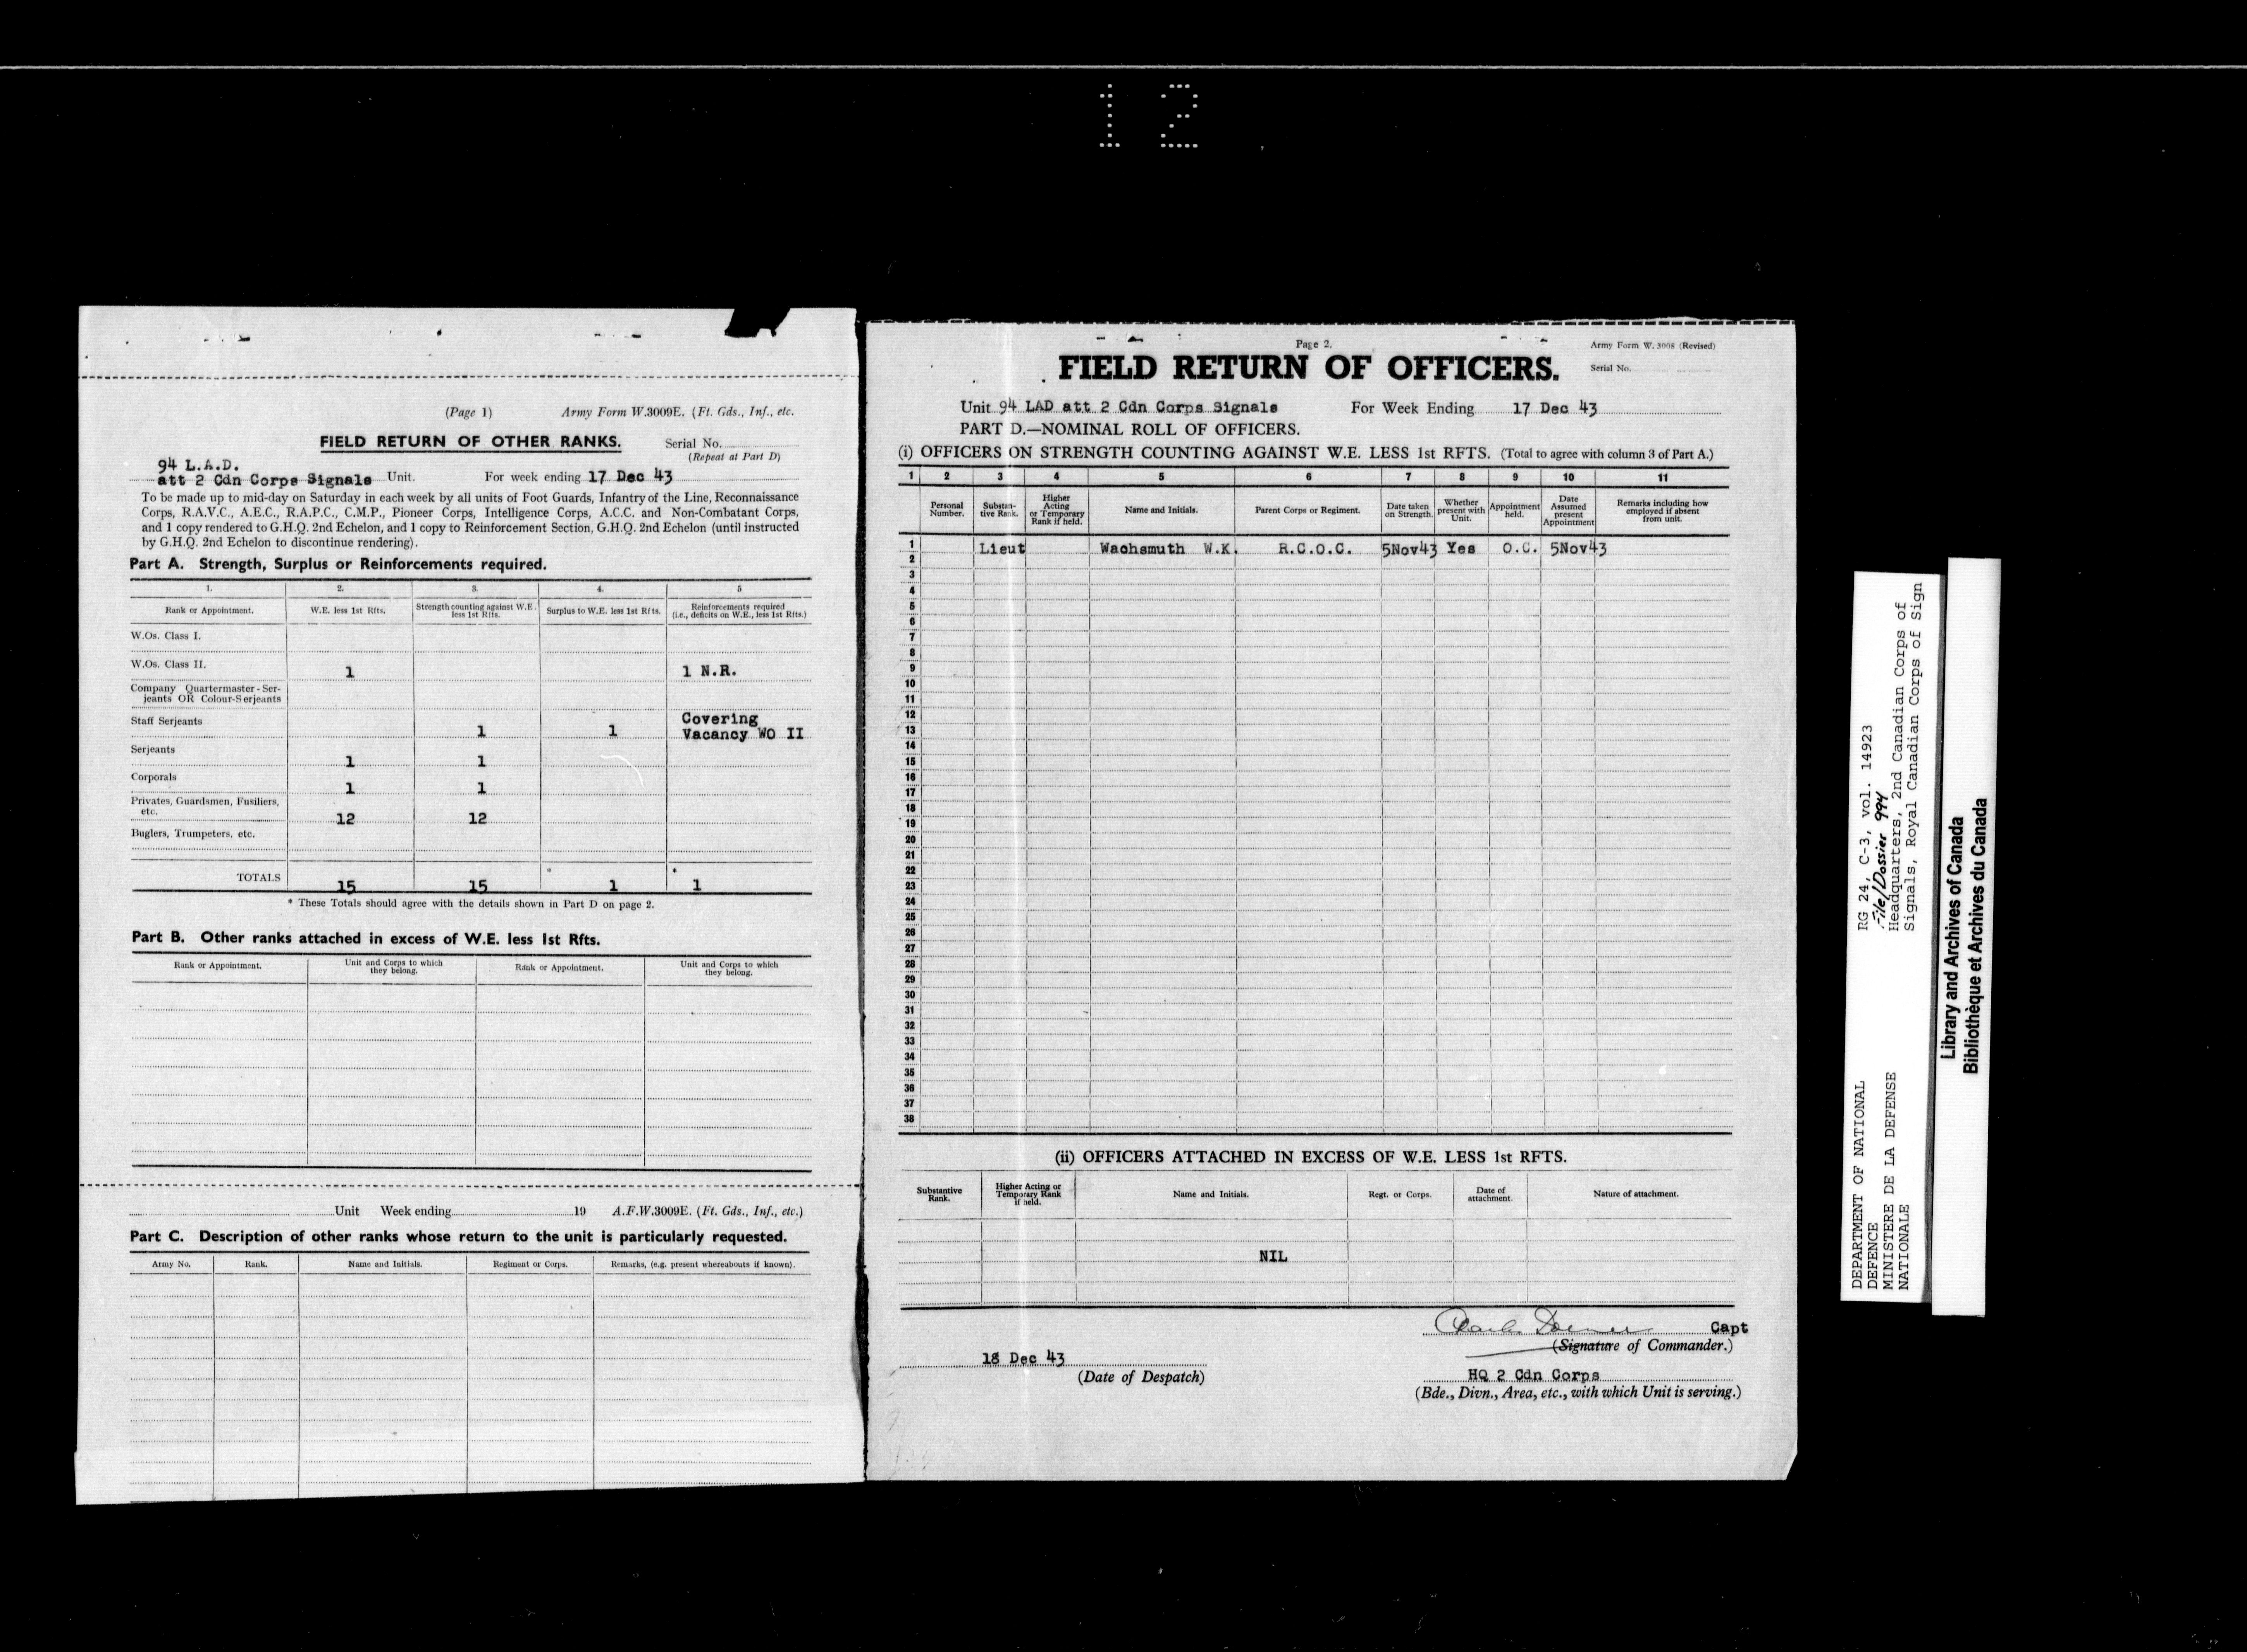 12
(Page 1) Army Form W.3009E. (Ft. Gds., Inf., etc.
FIELD RETURN OF OTHER RANKS. Serial No.
(Repeat at Part D)
94 L.A.D.
att 2 Cdn Corps Signals Unit. For week ending 17 Dec 43
To be made up to mid-day on Saturday in each week by all units of Foot Guards, Infantry of the Line, Reconnaissance
Corps, R.A.V.C., A.E.C., R.A.P.C., C.M.P., Pioneer Corps, Intelligence Corps, A.C.C. and Non-Combatant Corps,
and 1 copy rendered to G.H.Q. 2nd Echelon, and 1 copy to Reinforcement Section, G.H.Q. 2nd Echelon (until instructed
by G.H.Q. 2nd Echelon to discontinue rendering).
Part A. Strength, Surplus or Reinforcements required.
1. 2. 3. 4. 5
Rank or Appointment. W.E. less 1st Rfts. Strength counting against W.E. less 1st Rfts. Surplus to W.E. less 1st Rfts. Reinforcements required (i.e., deficits on W.E., less 1st Rfts.)
W.Os. Class I.
W.Os. Class II. 1 1 N.R.
Company Quartermaster-Ser-
jeants OR Colour-Serjeants
Staff Serjeants 1 1 Covering
Vacancy WO II
Serjeants 1 1
Corporals 1 1
Privates, Guardsmen, Fusiliers,
etc. 12 12
Buglers, Trumpeters, etc.
TOTALS 15 15 * 1 * 1
* These Totals should agree with the details shown in Part D on page 2.
Part B. Other ranks attached in excess of W.E. less 1st Rfts.
Rank or Appointment. Unit and Corps to which they belong. Rank or Appointment. Unit and Corps to which they belong.
Unit Week ending 19 A.F.W.3009E. (Ft. Gds., Inf., etc.)
Part C. Description of other ranks whose return to the unit is particularly requested.
Army No. Rank. Name and Initials. Regiment or Corps. Remarks, (e.g. present whereabouts if known).
Page 2. Army Form W. 3008 (Revised)
FIELD RETURN OF OFFICERS. Serial No.
Unit 94 LAD att 2 Cdn Corps Signals For Week Ending 17 Dec 43
PART D.—NOMINAL ROLL OF OFFICERS.
(i) OFFICERS ON STRENGTH COUNTING AGAINST W.E. LESS 1st RFTS. (Total to agree with column 3 of Part A.)
1 2 3 4 5 6 7 8 9 10 11
Personal Number. Substan-tive Rank. Higher Acting or Temporary Rank if held. Name and Initials. Parent Corps or Regiment. Date taken on Strength. Whether present with Unit. Appointment held. Date Assumed present Appointment Remarks including how employed if absent from unit.
1 Lieut Wachsmuth W.K. R.C.O.C. 5Nov43 Yes O.C. 5Nov43
2
3
4
5
6
7
8
9
10
11
12
13
14
15
16
17
18
19
20
21
22
23
24
25
26
27
28
29
30
31
32
33
34
35
36
37
38
(ii) OFFICERS ATTACHED IN EXCESS OF W.E. LESS 1st RFTS.
Substantive Rank. Higher Acting or Temporary Rank if held. Name and Initials. Regt. or Corps. Date of attachment. Nature of attachment.
NIL
Capt
(Signature of Commander.)
18 Dec 43
(Date of Despatch)
HQ 2 Cdn Corps
(Bde., Divn., Area, etc., with which Unit is serving.)
DEPARTMENT OF NATIONAL
DEFENCE
MINISTERE DE LA DEFENSE
NATIONALE
RG 24, C-3, vol. 14923
File/Dossier 994
Headquarters, 2nd Canadian Corps of
Signals, Royal Canadian Corps of Sign
Library and Archives of Canada
Bibliothèque et Archives du Canada